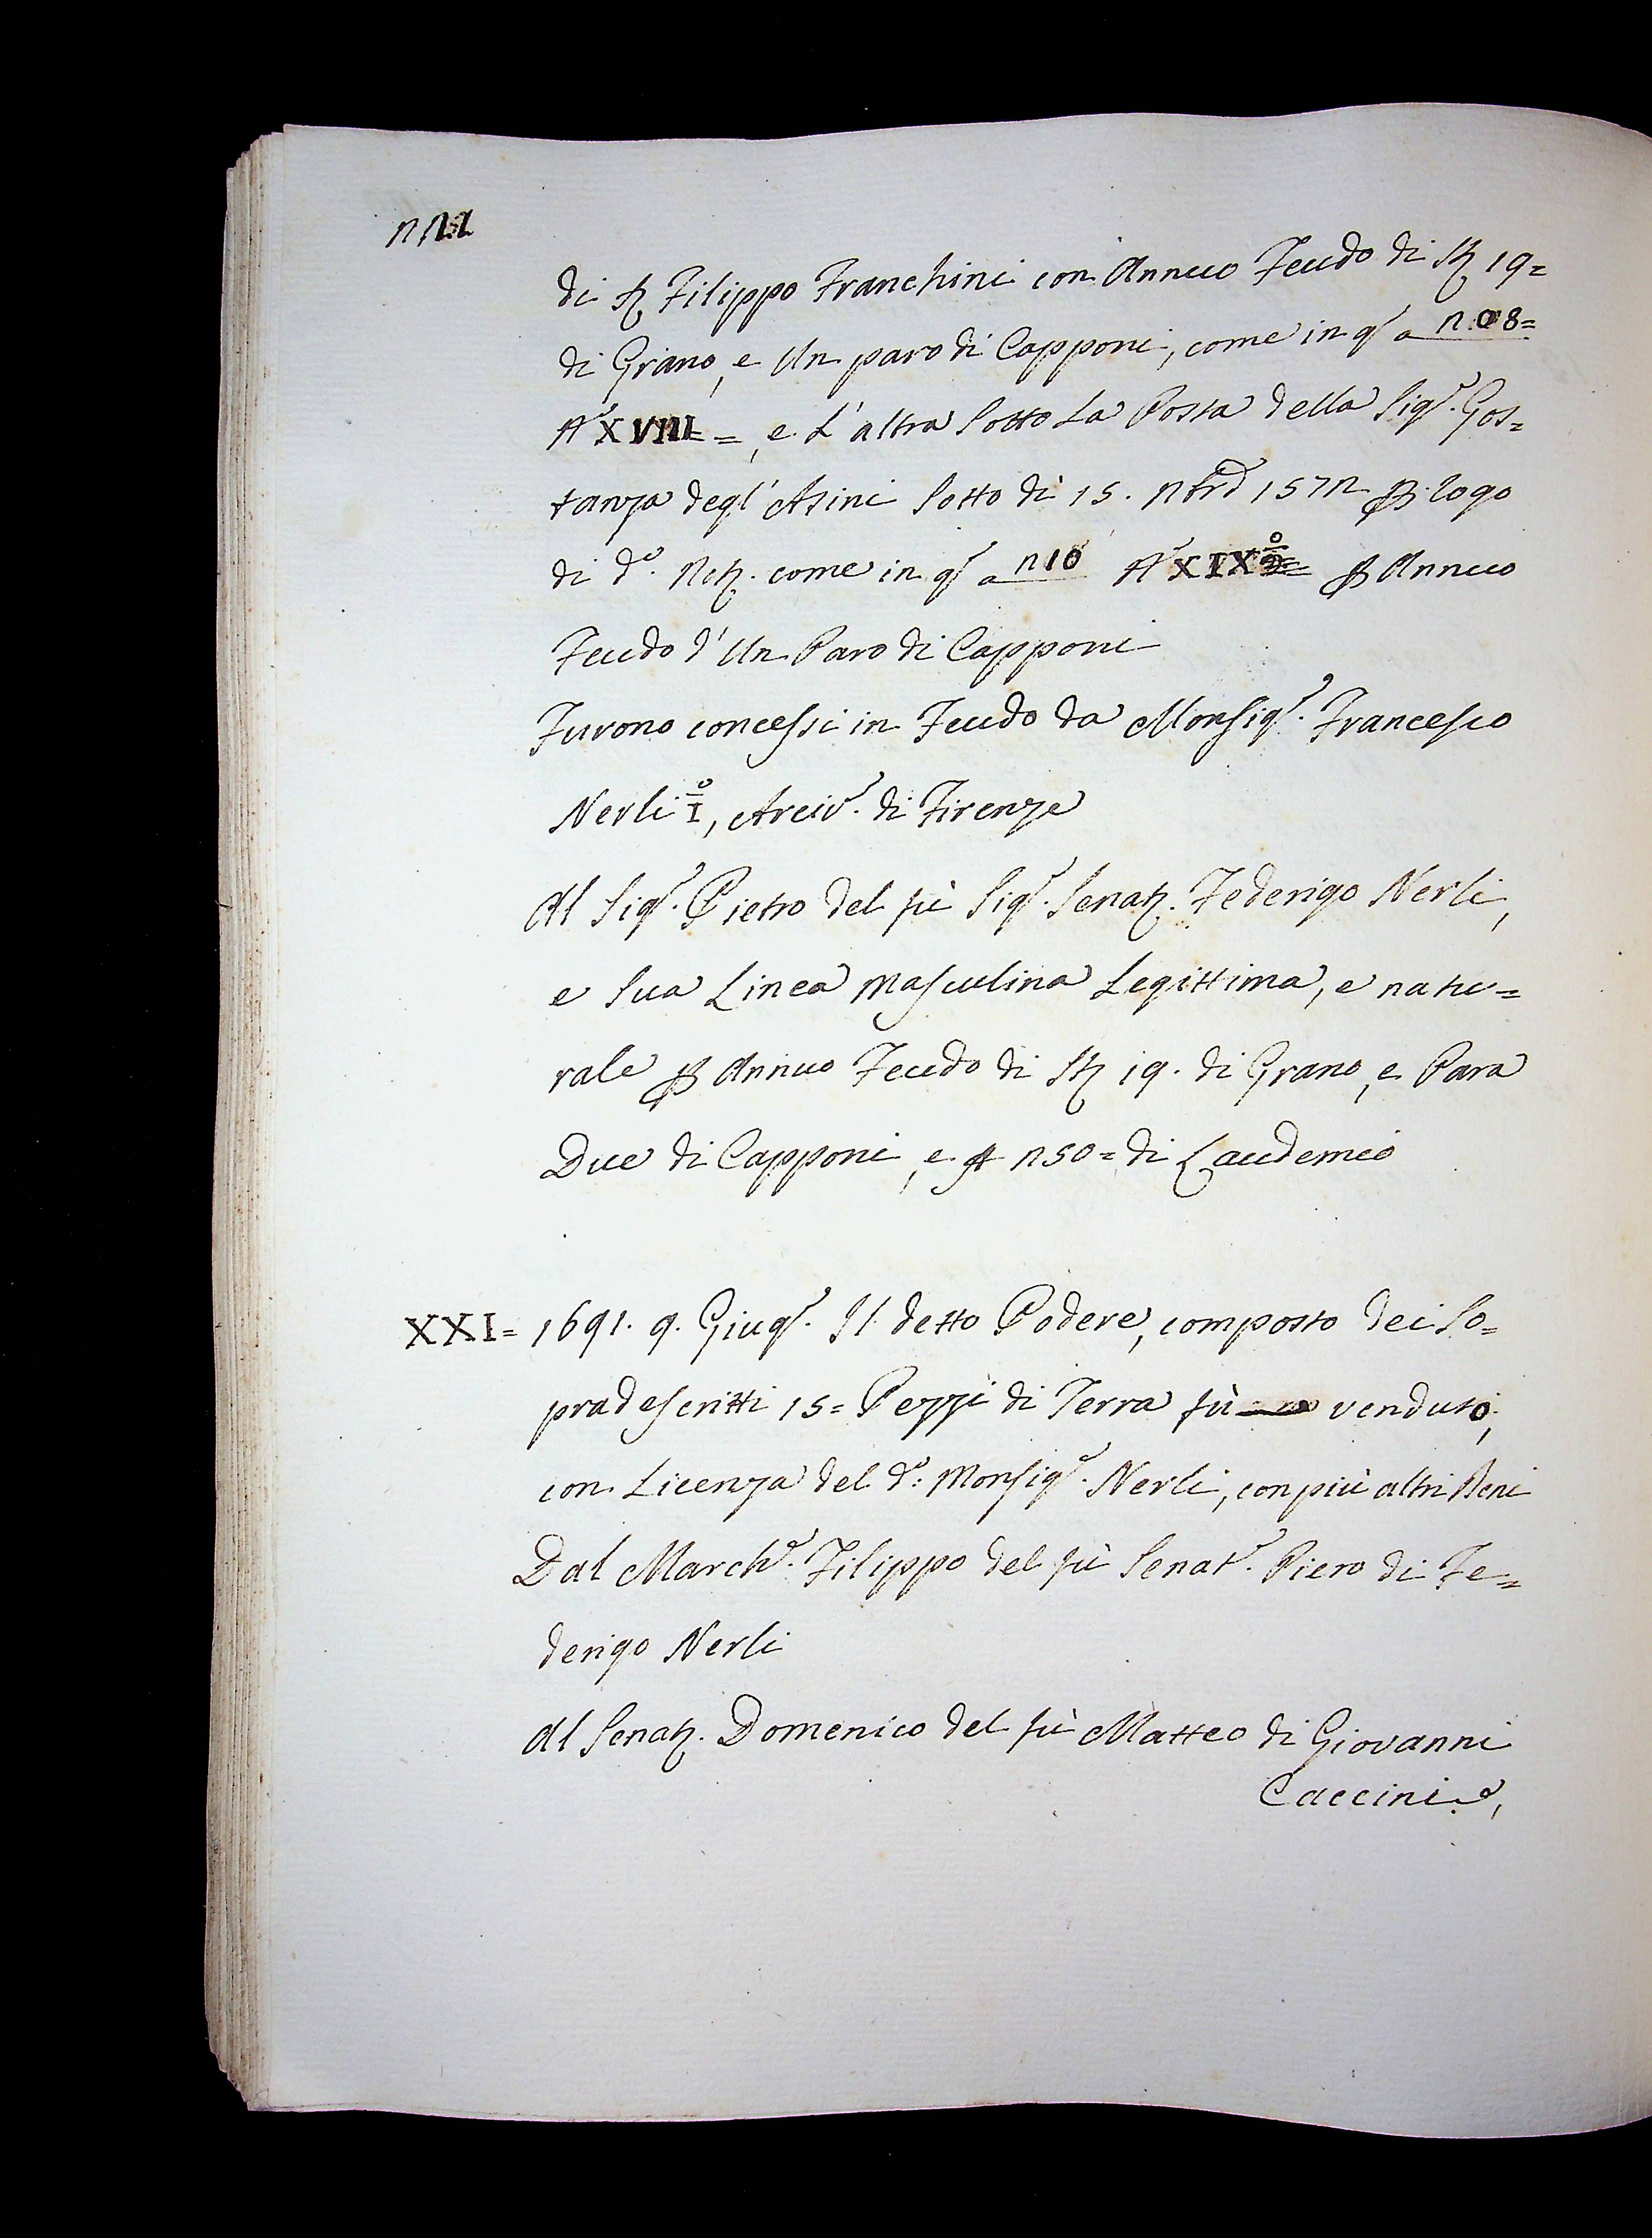 di Filippo Franchini con Annuo Feudo di St 19=
di Grano, e Un paro di Capponi, come in q.o a 208=
No XVIII=, e L'altra Sotto La Posta della Sig.a Gos=
tanza degl'Asini Sotto dì 15. Nbre 1572 p rogo
di d.o Not. come in q.o a 210 No XIX 2o= p Annuo
Feudo d'Un Paro di Capponi
Furono concessi in Feudo da Monsig.r Francesco
Nerli Io, Arciv.o di Firenze
Al Sig.r Pietro del fù Sig.r Senat. Federigo Nerli,
e Sua Linea Masculina Legittima, e natu=
rale p Annuo Feudo di St 19. di Grano, e Para
Due di Capponi, e 250= di Laudemio
XXI= 1691. 9. Giug.o Il detto Podere, composto dei So=
pradescritti 15= Pezzi di Terra fù venduto,
con Licenza del d.o: Monsig.r Nerli, con più altri Beni
Dal March.e Filippo del fù Senat.e Piero di Fe=
derigo Nerli
Al Senat. Domenico del fù Matteo di Giovanni
Caccini,